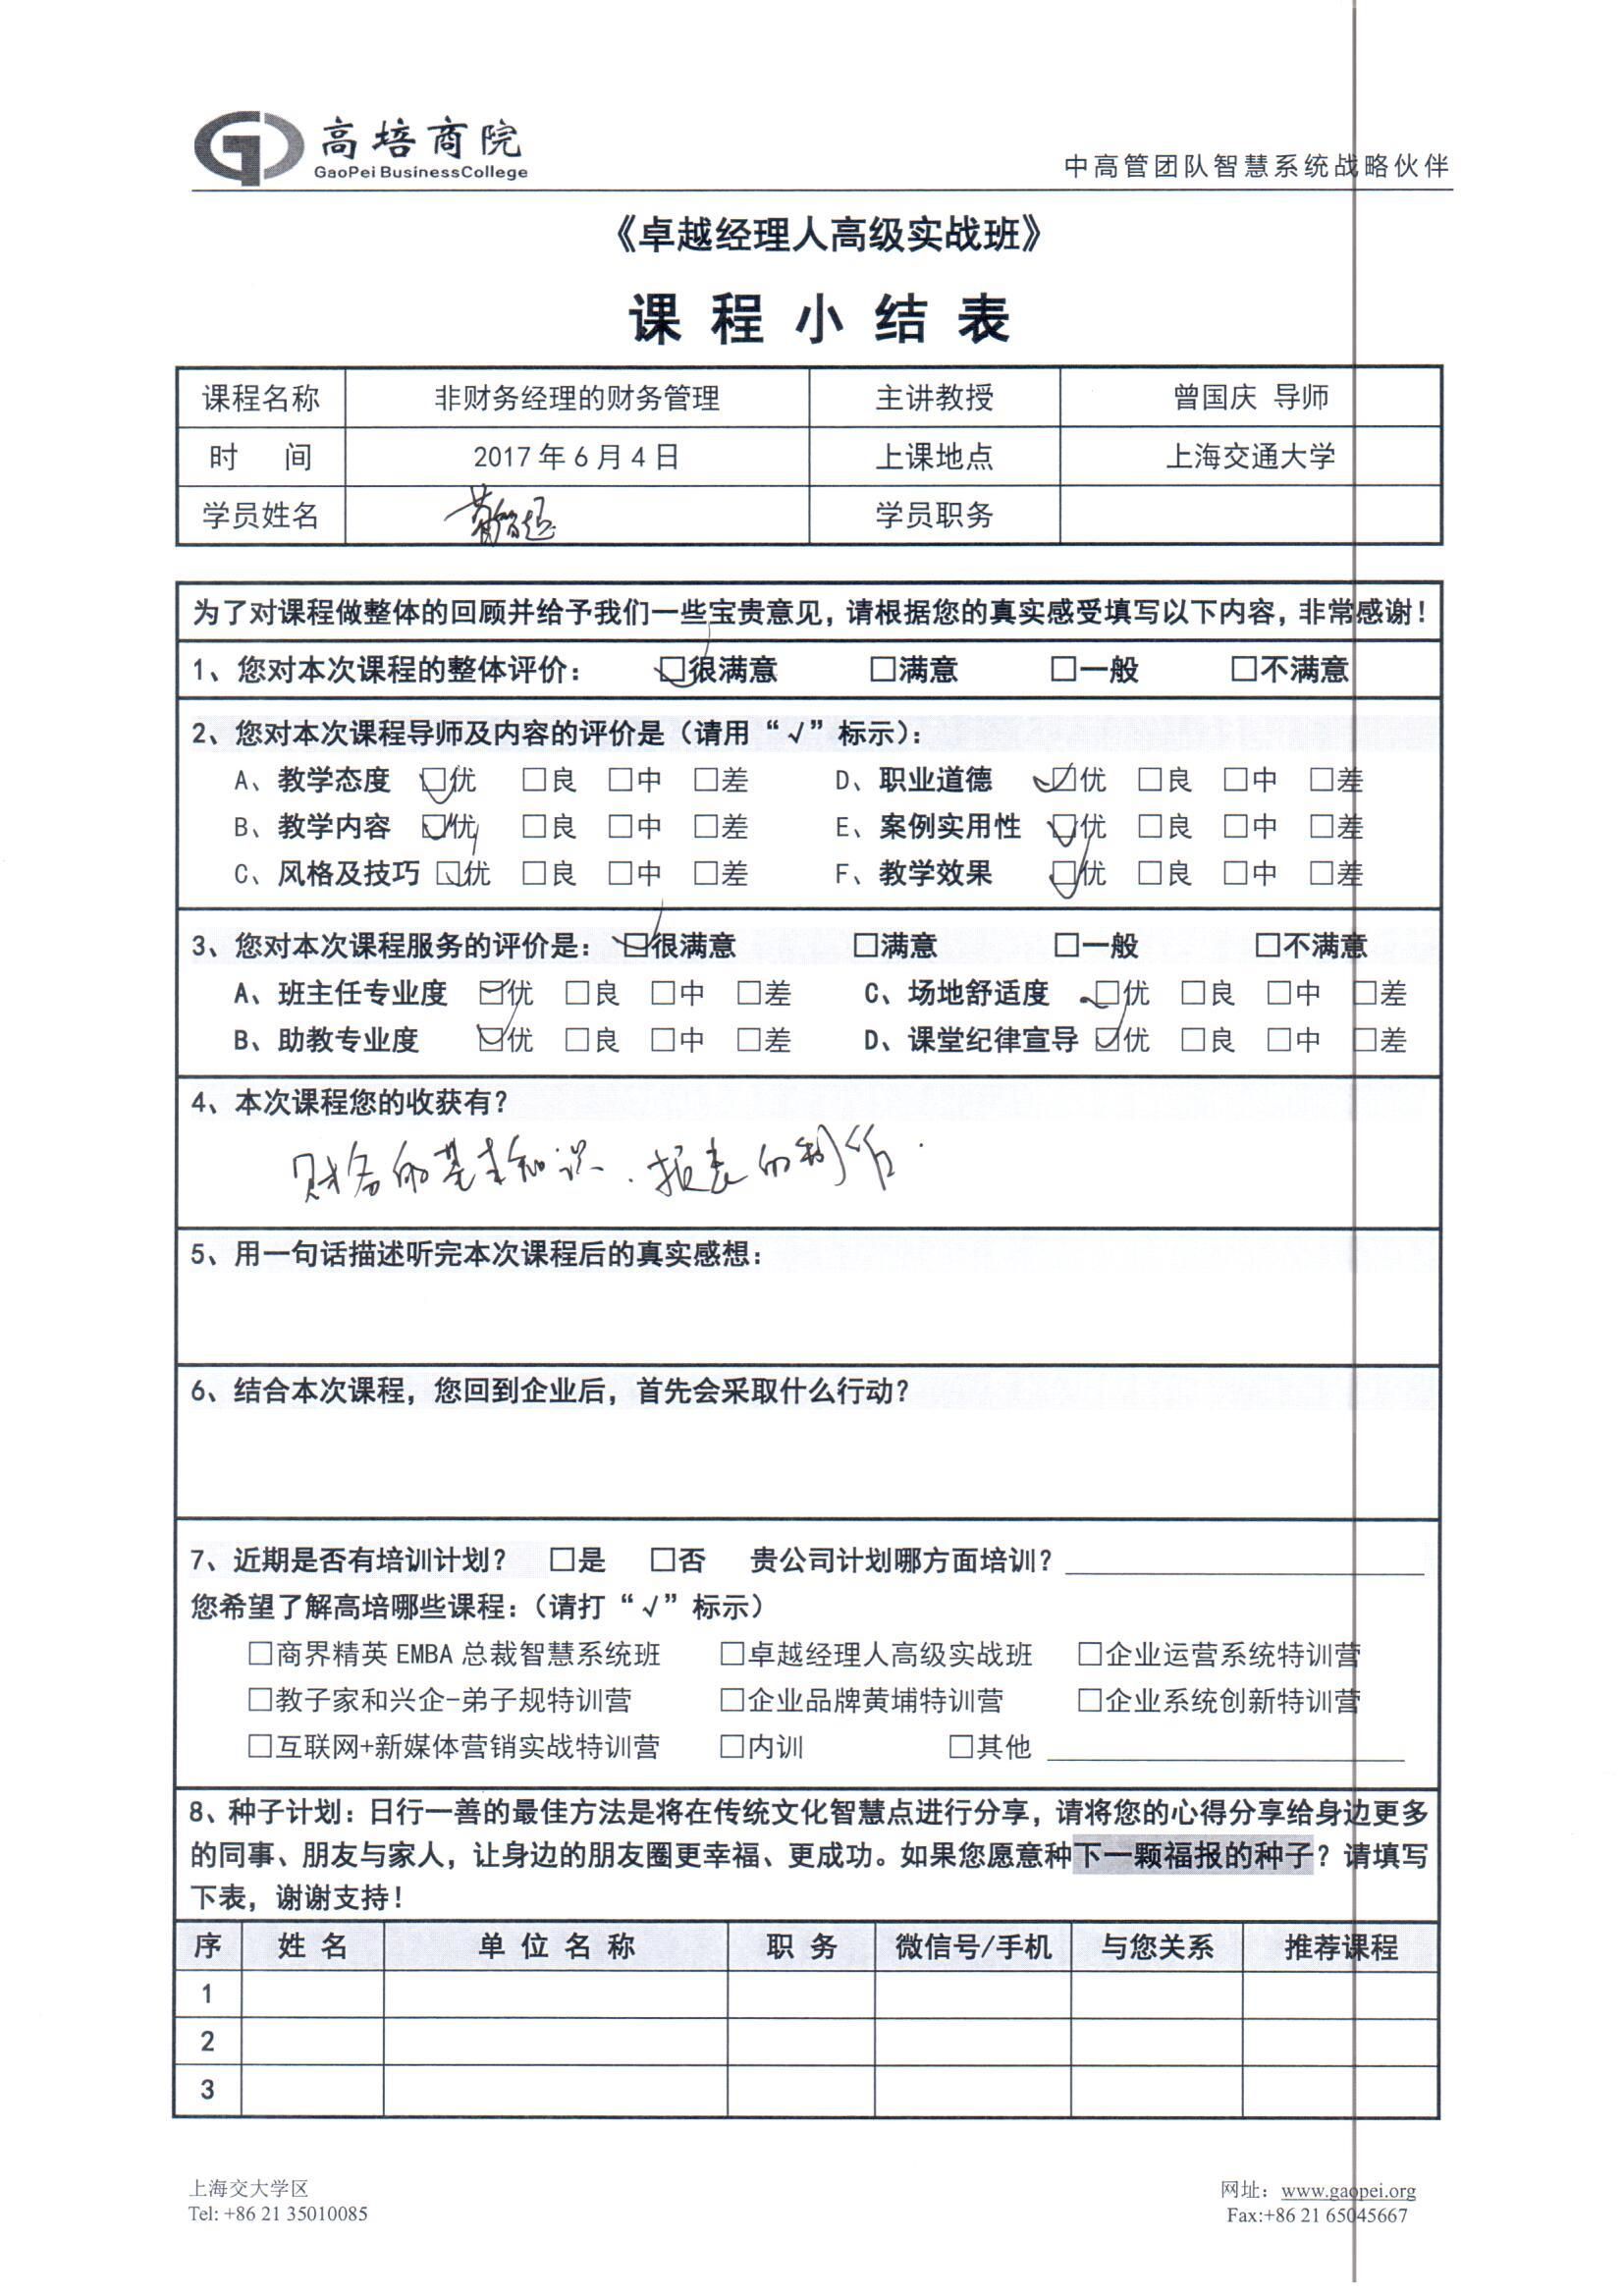 高培商院
GaoPei BusinessCollege
中高管团队智慧系统战略伙伴
《卓越经理人高级实战班》
课 程 小 结 表
课程名称 非财务经理的财务管理 主讲教授 曾国庆 导师
时 间 2017 年 6 月 4 日 上课地点 上海交通大学
学员姓名 学员职务
为了对课程做整体的回顾并给予我们一些宝贵意见，请根据您的真实感受填写以下内容，非常感谢！
1、您对本次课程的整体评价： □很满意 □满意 □一般 □不满意
2、您对本次课程导师及内容的评价是（请用“√”标示）：
A、教学态度 □优 □良 □中 □差 D、职业道德 □优 □良 □中 □差
B、教学内容 □优 □良 □中 □差 E、案例实用性 □优 □良 □中 □差
C、风格及技巧 □优 □良 □中 □差 F、教学效果 □优 □良 □中 □差
3、您对本次课程服务的评价是： □很满意 □满意 □一般 □不满意
A、班主任专业度 □优 □良 □中 □差 C、场地舒适度 □优 □良 □中 □差
B、助教专业度 □优 □良 □中 □差 D、课堂纪律宣导 □优 □良 □中 □差
4、本次课程您的收获有？
财务的基本知识、报表的制作.
5、用一句话描述听完本次课程后的真实感想：
6、结合本次课程，您回到企业后，首先会采取什么行动？
7、近期是否有培训计划？ □是 □否 贵公司计划哪方面培训？
您希望了解高培哪些课程：（请打“√”标示）
□商界精英 EMBA 总裁智慧系统班 □卓越经理人高级实战班 □企业运营系统特训营
□教子家和兴企-弟子规特训营 □企业品牌黄埔特训营 □企业系统创新特训营
□互联网+新媒体营销实战特训营 □内训 □其他
8、种子计划：日行一善的最佳方法是将在传统文化智慧点进行分享，请将您的心得分享给身边更多
的同事、朋友与家人，让身边的朋友圈更幸福、更成功。如果您愿意种下一颗福报的种子？请填写
下表，谢谢支持！
序 姓 名 单 位 名 称 职 务 微信号/手机 与您关系 推荐课程
1
2
3
上海交大学区 网址：www.gaopei.org
Tel: +86 21 35010085 Fax:+86 21 65045667